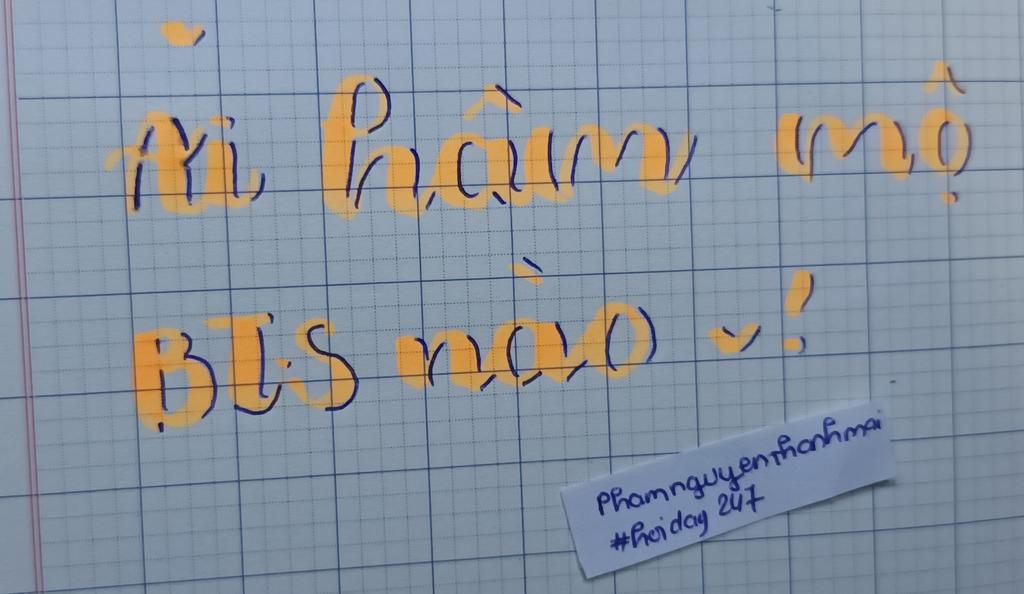 Ai hâm mộ
BTS nào !
Phamnguyenthanhmai
#hoiday247